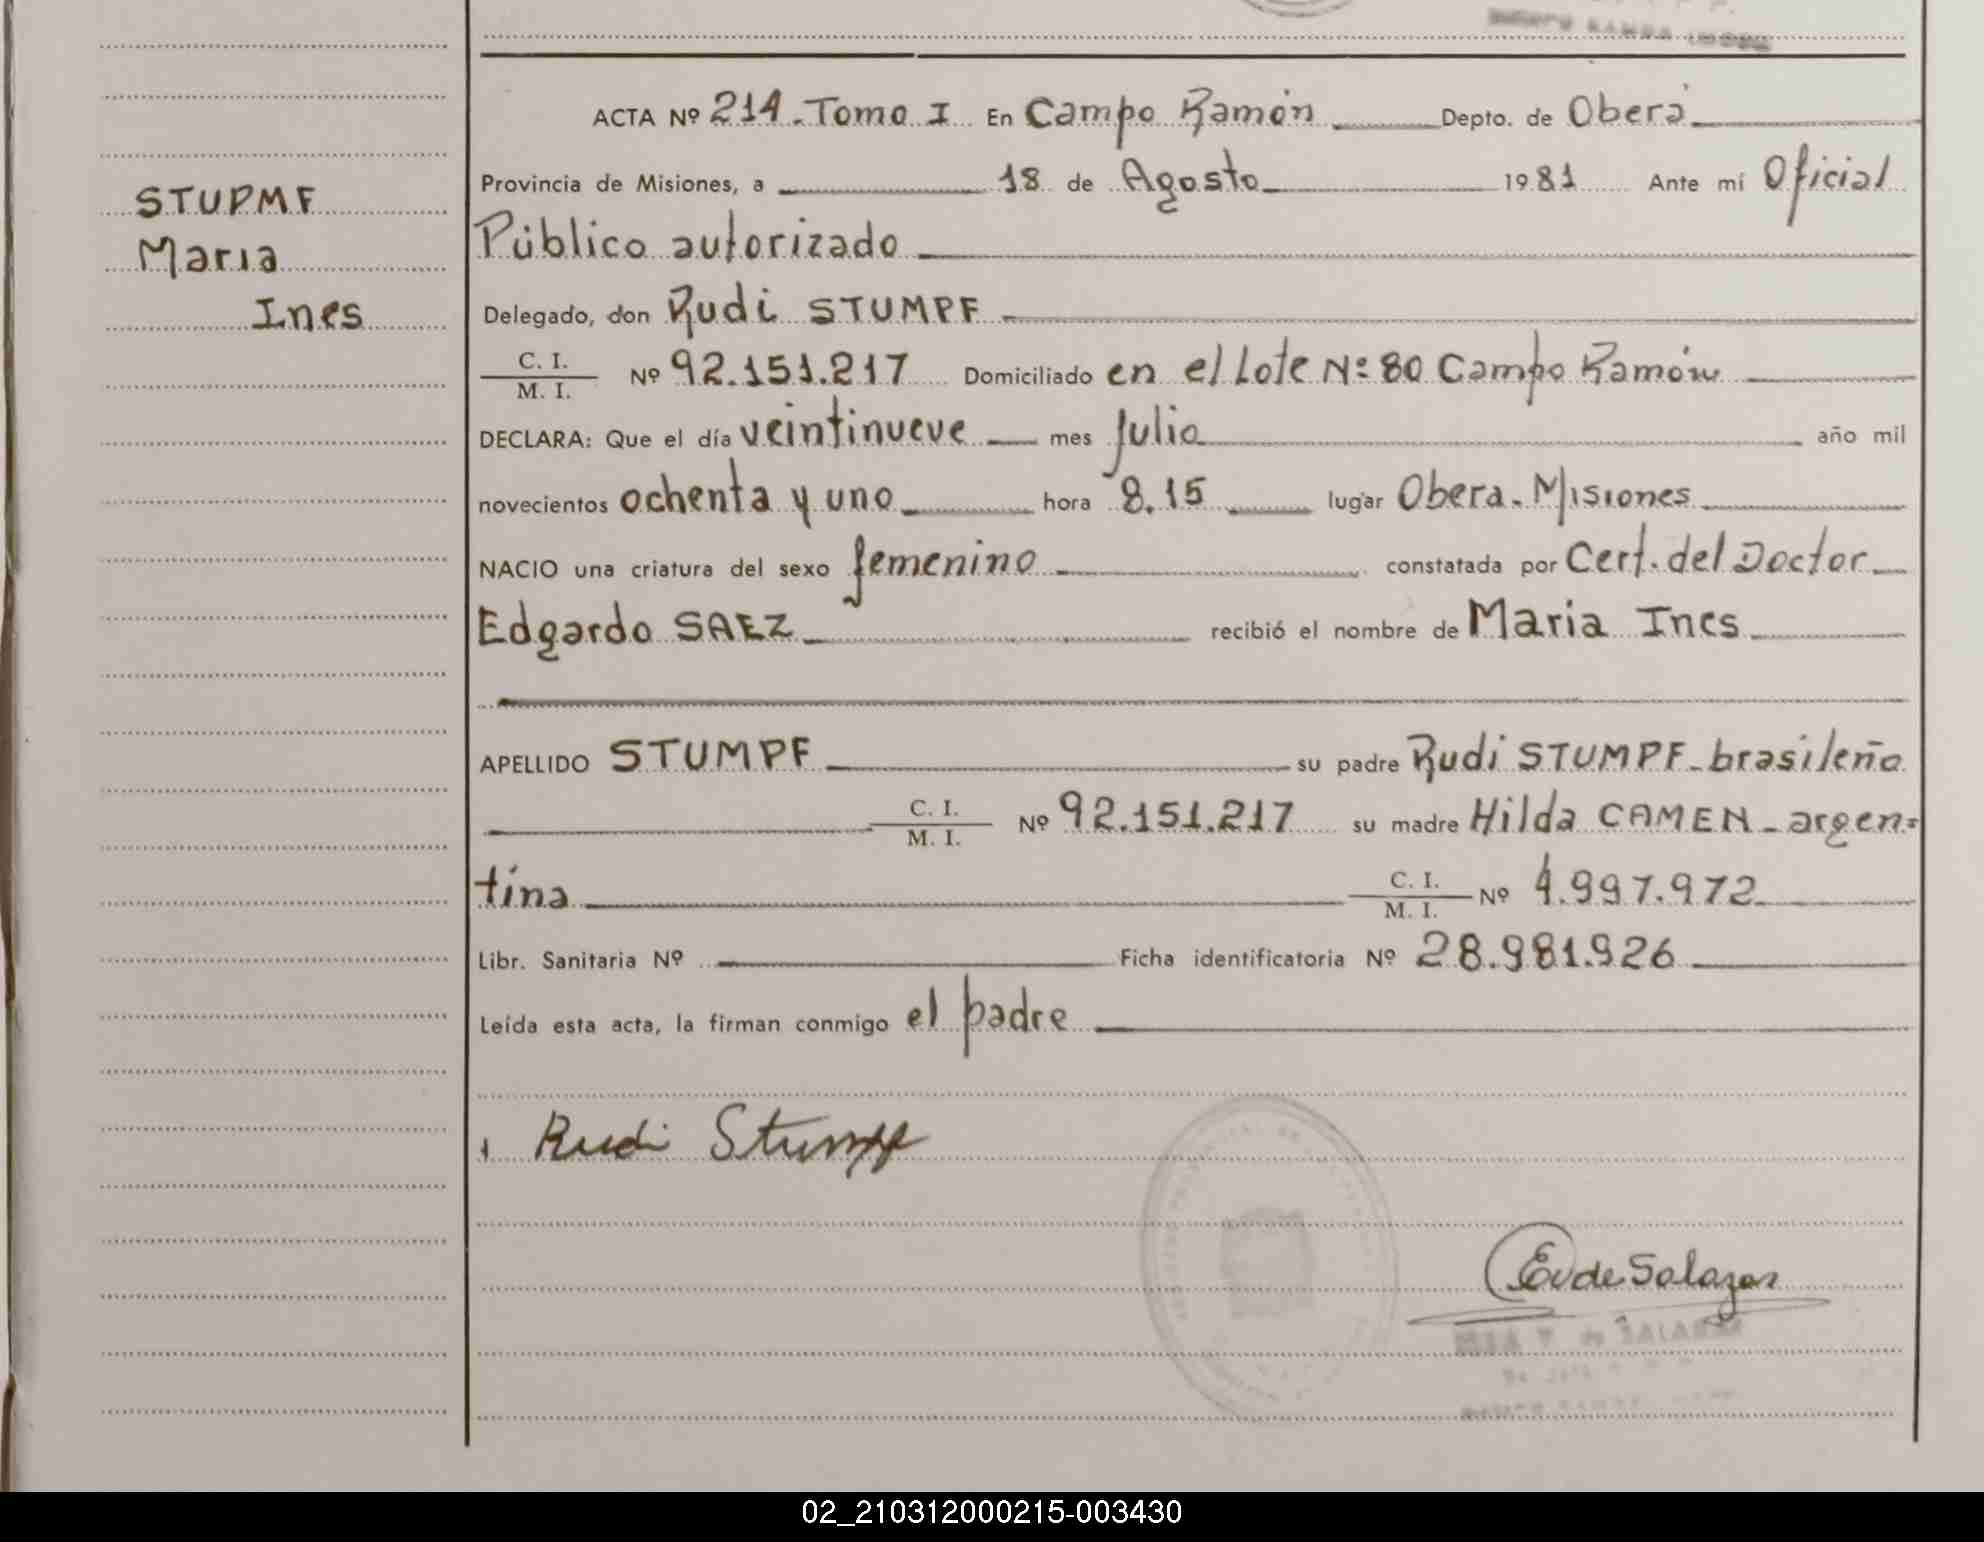 STUPMF
Maria
Ines
ACTA Nº 214. Tomo I En Campo Ramón Depto. de Oberá
Provincia de Misiones, a 18 de Agosto 1981 Ante mí Oficial
Público autorizado
Delegado, don Rudi STUMPF
C. I.
M. I. Nº 92.151.217 Domiciliado en el Lote Nº 80 Campo Ramón
DECLARA: Que el día veintinueve mes julio año mil
novecientos ochenta y uno hora 8.15 lugar Obera. Misiones
NACIO una criatura del sexo femenino constatada por Cert. del Doctor
Edgardo SAEZ recibió el nombre de Maria Ines
APELLIDO STUMPF su padre Rudi STUMPF - brasileño
C. I.
M. I. Nº 92.151.217 su madre Hilda CAMEN - argen=
tina C. I.
M. I. Nº 4.997.972
Libr. Sanitaria Nº Ficha identificatoria Nº 28.981.926
Leída esta acta, la firman conmigo el padre
Rudi Stumpf
E v de Salazar
V. de SALAZAR
02_210312000215-003430